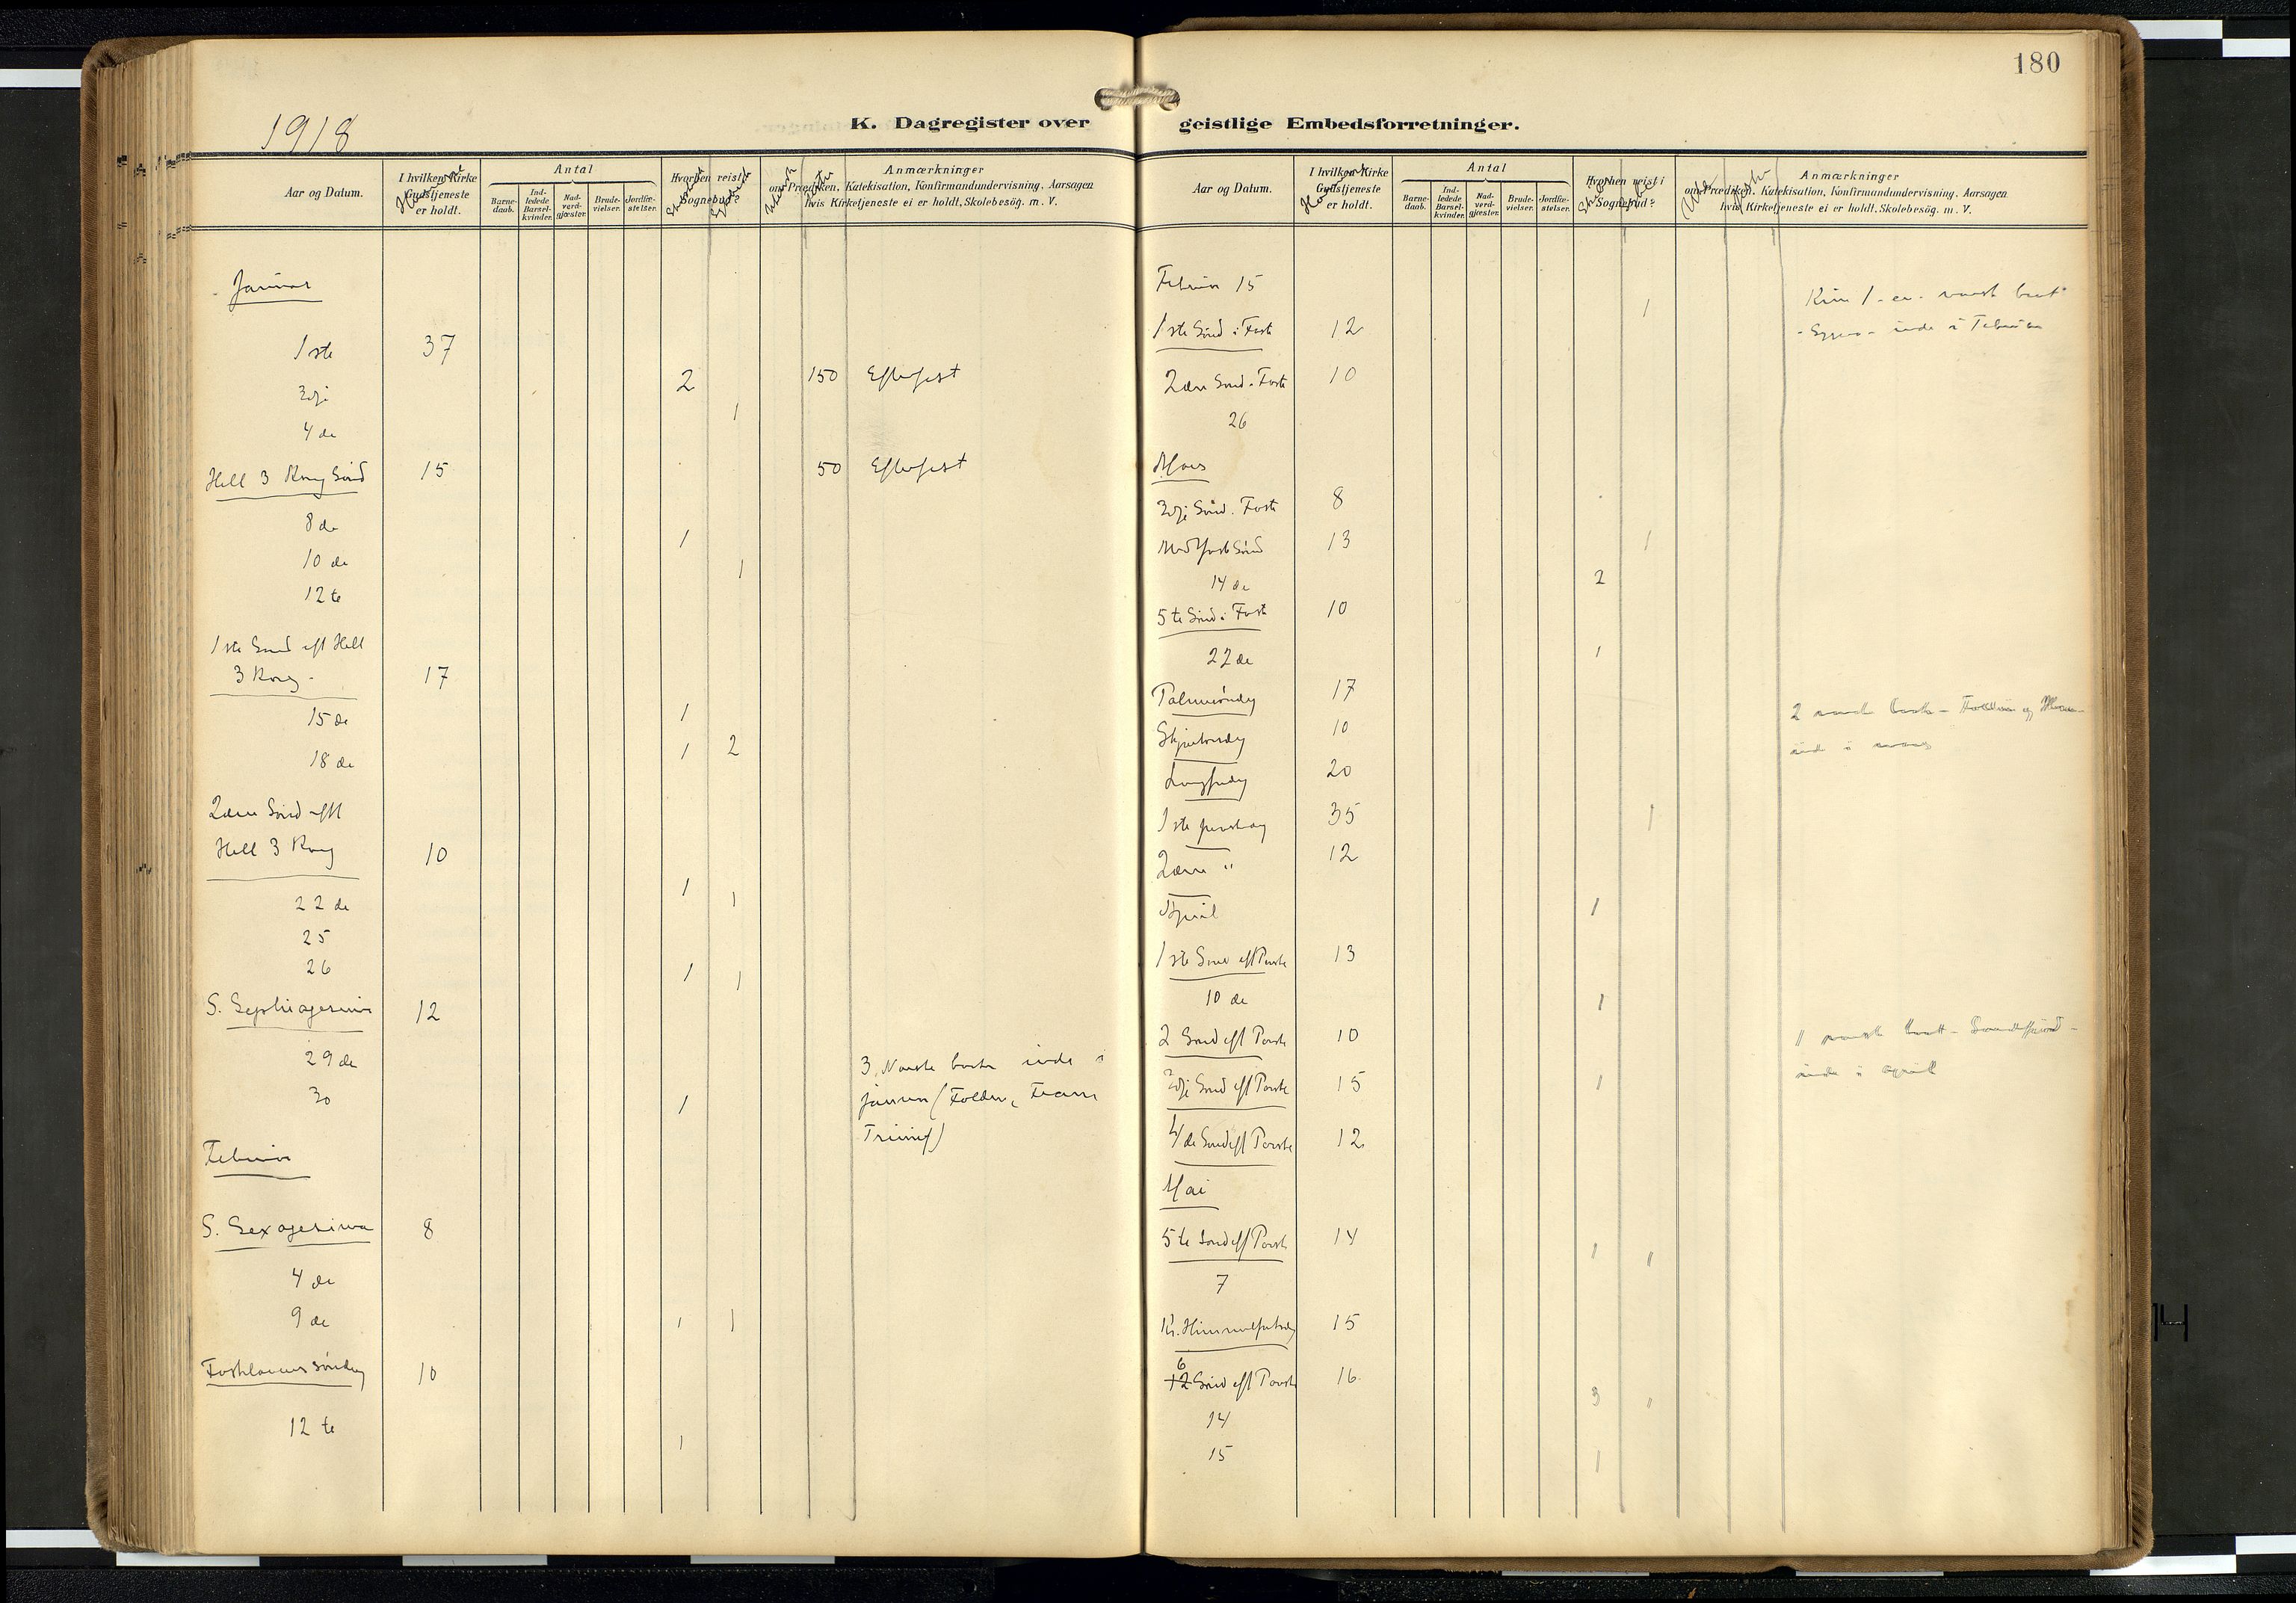 180
1918
K. Dagregister over geistlige Embedsforretninger.
Aar og Datum.
I hvilken Kirke Gudstjeneste er holdt.
Antal
Barne-daab.
Ind-ledede Barsel-kvinder.
Nad-verd-gjæster.
Brude-vielser.
Jordfæ-stelser.
Hvorhen reist i Sognebud?
Anmærkninger
om Prædiken, Katekisation, Konfirmandundervisning, Aarsagen
hvis Kirketjeneste ei er holdt, Skolebesög. m. V.
Januar
1ste 37
3dje 2 150 Efterfest
4de 1
Hell 3 Kong Sönd 15 50 Efterfest
8de
10de 1
12te 1
1ste Sönd eft Hell
3 Kong - 17
15de 1
18de 1 2
2den Sönd eft
Hell 3 Kong 10
22de 1 1
25
26 1 1
S. Septuagesima 12
29de 3 Norske baater inde i
30 1 januar (Folden, Fram
Triumf)
Februar
S. Sexagesima 8
4de
9de 1 1
Fastelavns söndag 10
12te 1
Aar og Datum.
I hvilken Kirke Gudstjeneste er holdt.
Antal
Barne-daab.
Ind-ledede Barsel-kvinder.
Nad-verd-gjæster.
Brude-vielser.
Jordfæ-stelser.
Hvorhen reist i Sognebud?
Anmærkninger
om Prædiken, Katekisation, Konfirmandundervisning, Aarsagen
hvis Kirketjeneste ei er holdt, Skolebesög. m. V.
Februar 15 1 norsk baat
1ste Sönd i Faste 12 inde i Februar
2den Sönd i Faste 10
26
Mars
3dje Sönd i Faste 8
Midfaste Sönd 13 1
14de 2
5te Sönd i Faste 10
22de 1
Palmesöndag 17 2 norske baater - Folden og
Skjærtorsdag 10 inde i mars
Langfredag 20
1ste paaskedag 35 1
2den " 12
April 1
1ste Sönd eft Paaske 13
10de 1
2 Sönd eft Paaske 10 norsk baat - Sandefjord -
3dje Sönd eft Paaske 15 1 inde i april
4de Sönd eft Paaske 12
Mai
5te Sönd eft Paaske 14 1 "
7
Kr. Himmelfartsdag 15
6
12 Sönd eft Paaske 16
14 3 "
15 1